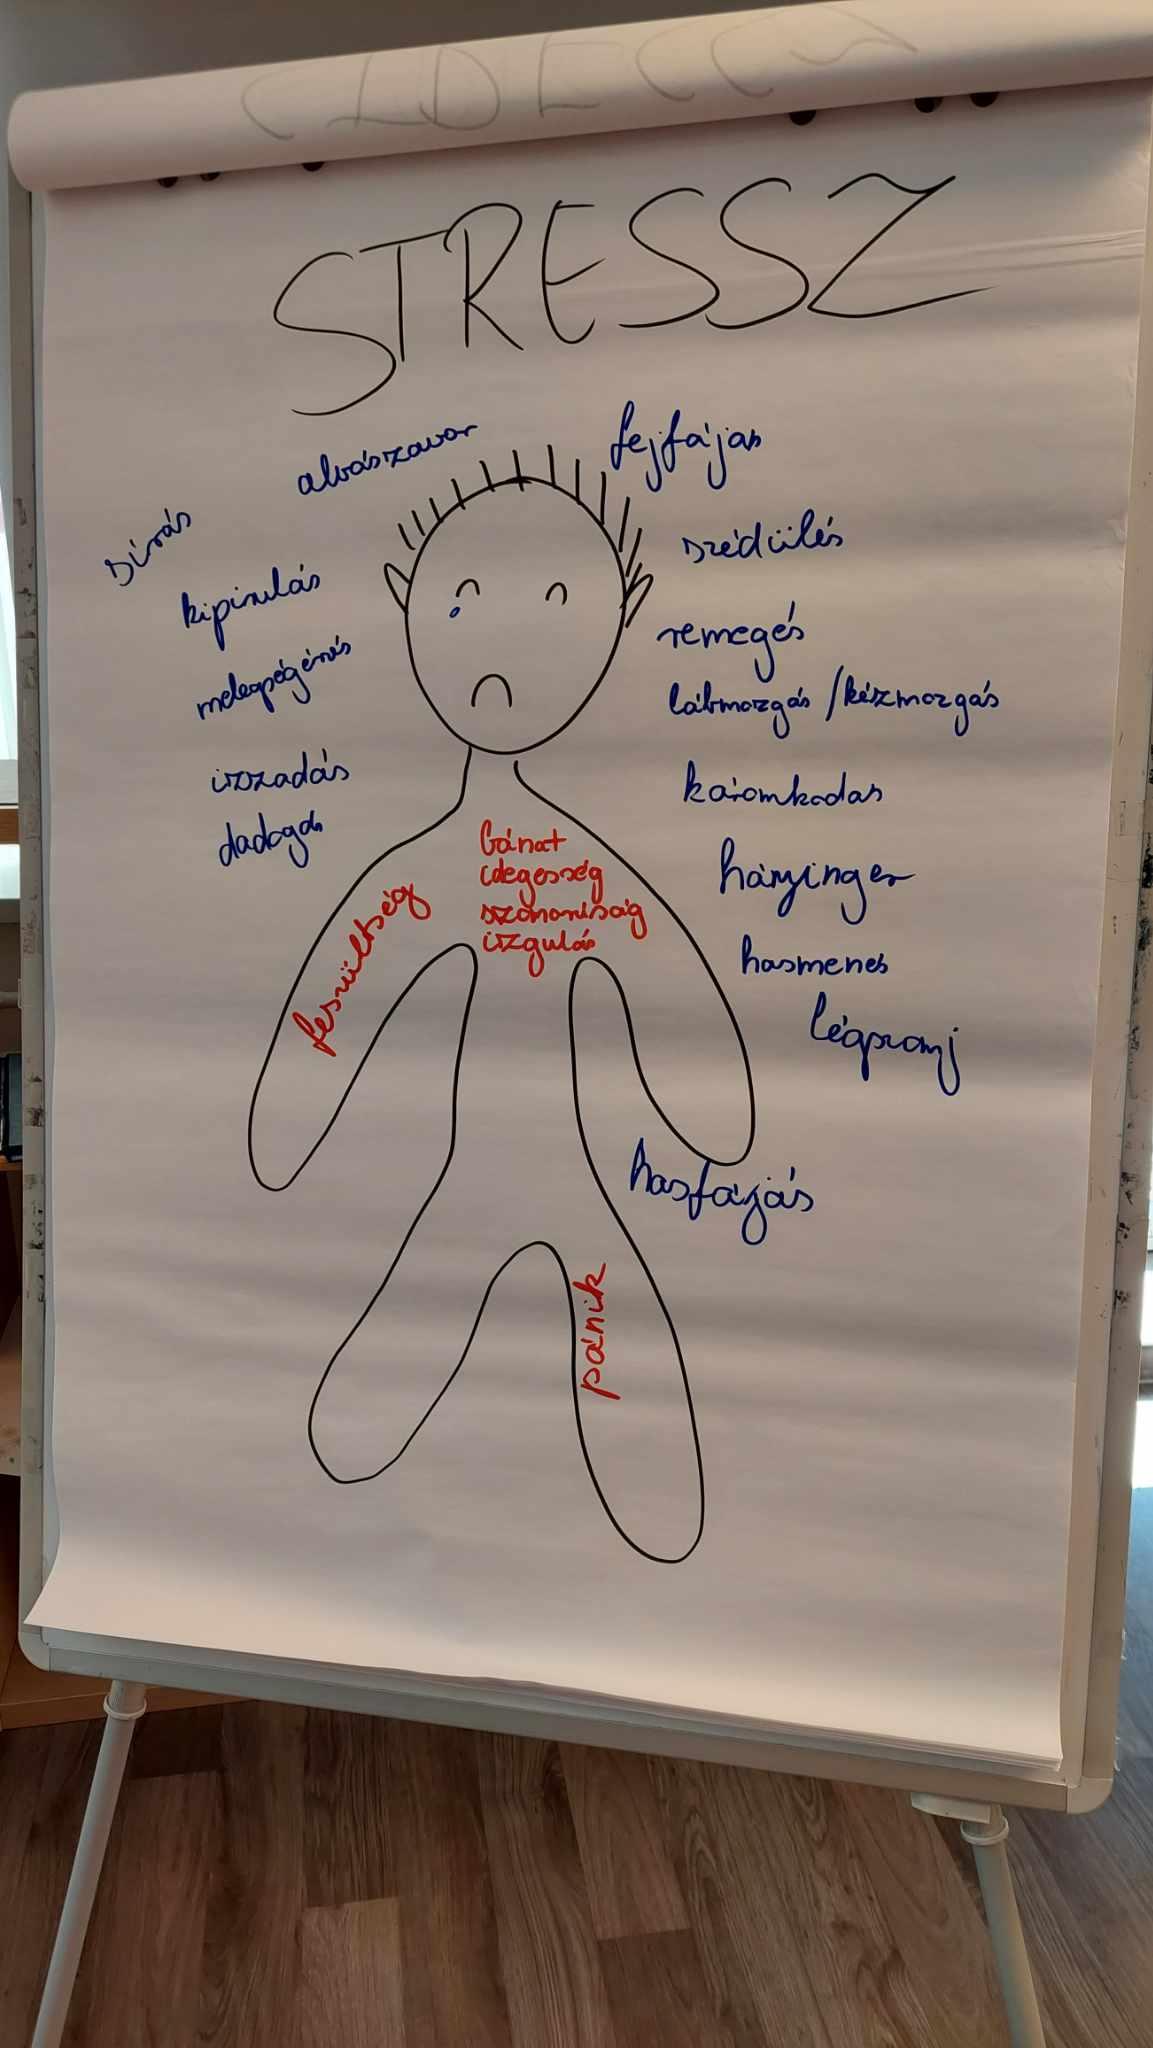 STRESSZ
alvászavar
fejfájás
sírás
szédülés
kipirulás
remegés
melegségérzés
lábmozgás / kézmozgás
izzadás
káromkodás
dadogás
bánat
idegesség
szomorúság
izgulás
feszültség
hányinger
hasmenés
légszomj
hasfájás
pánik